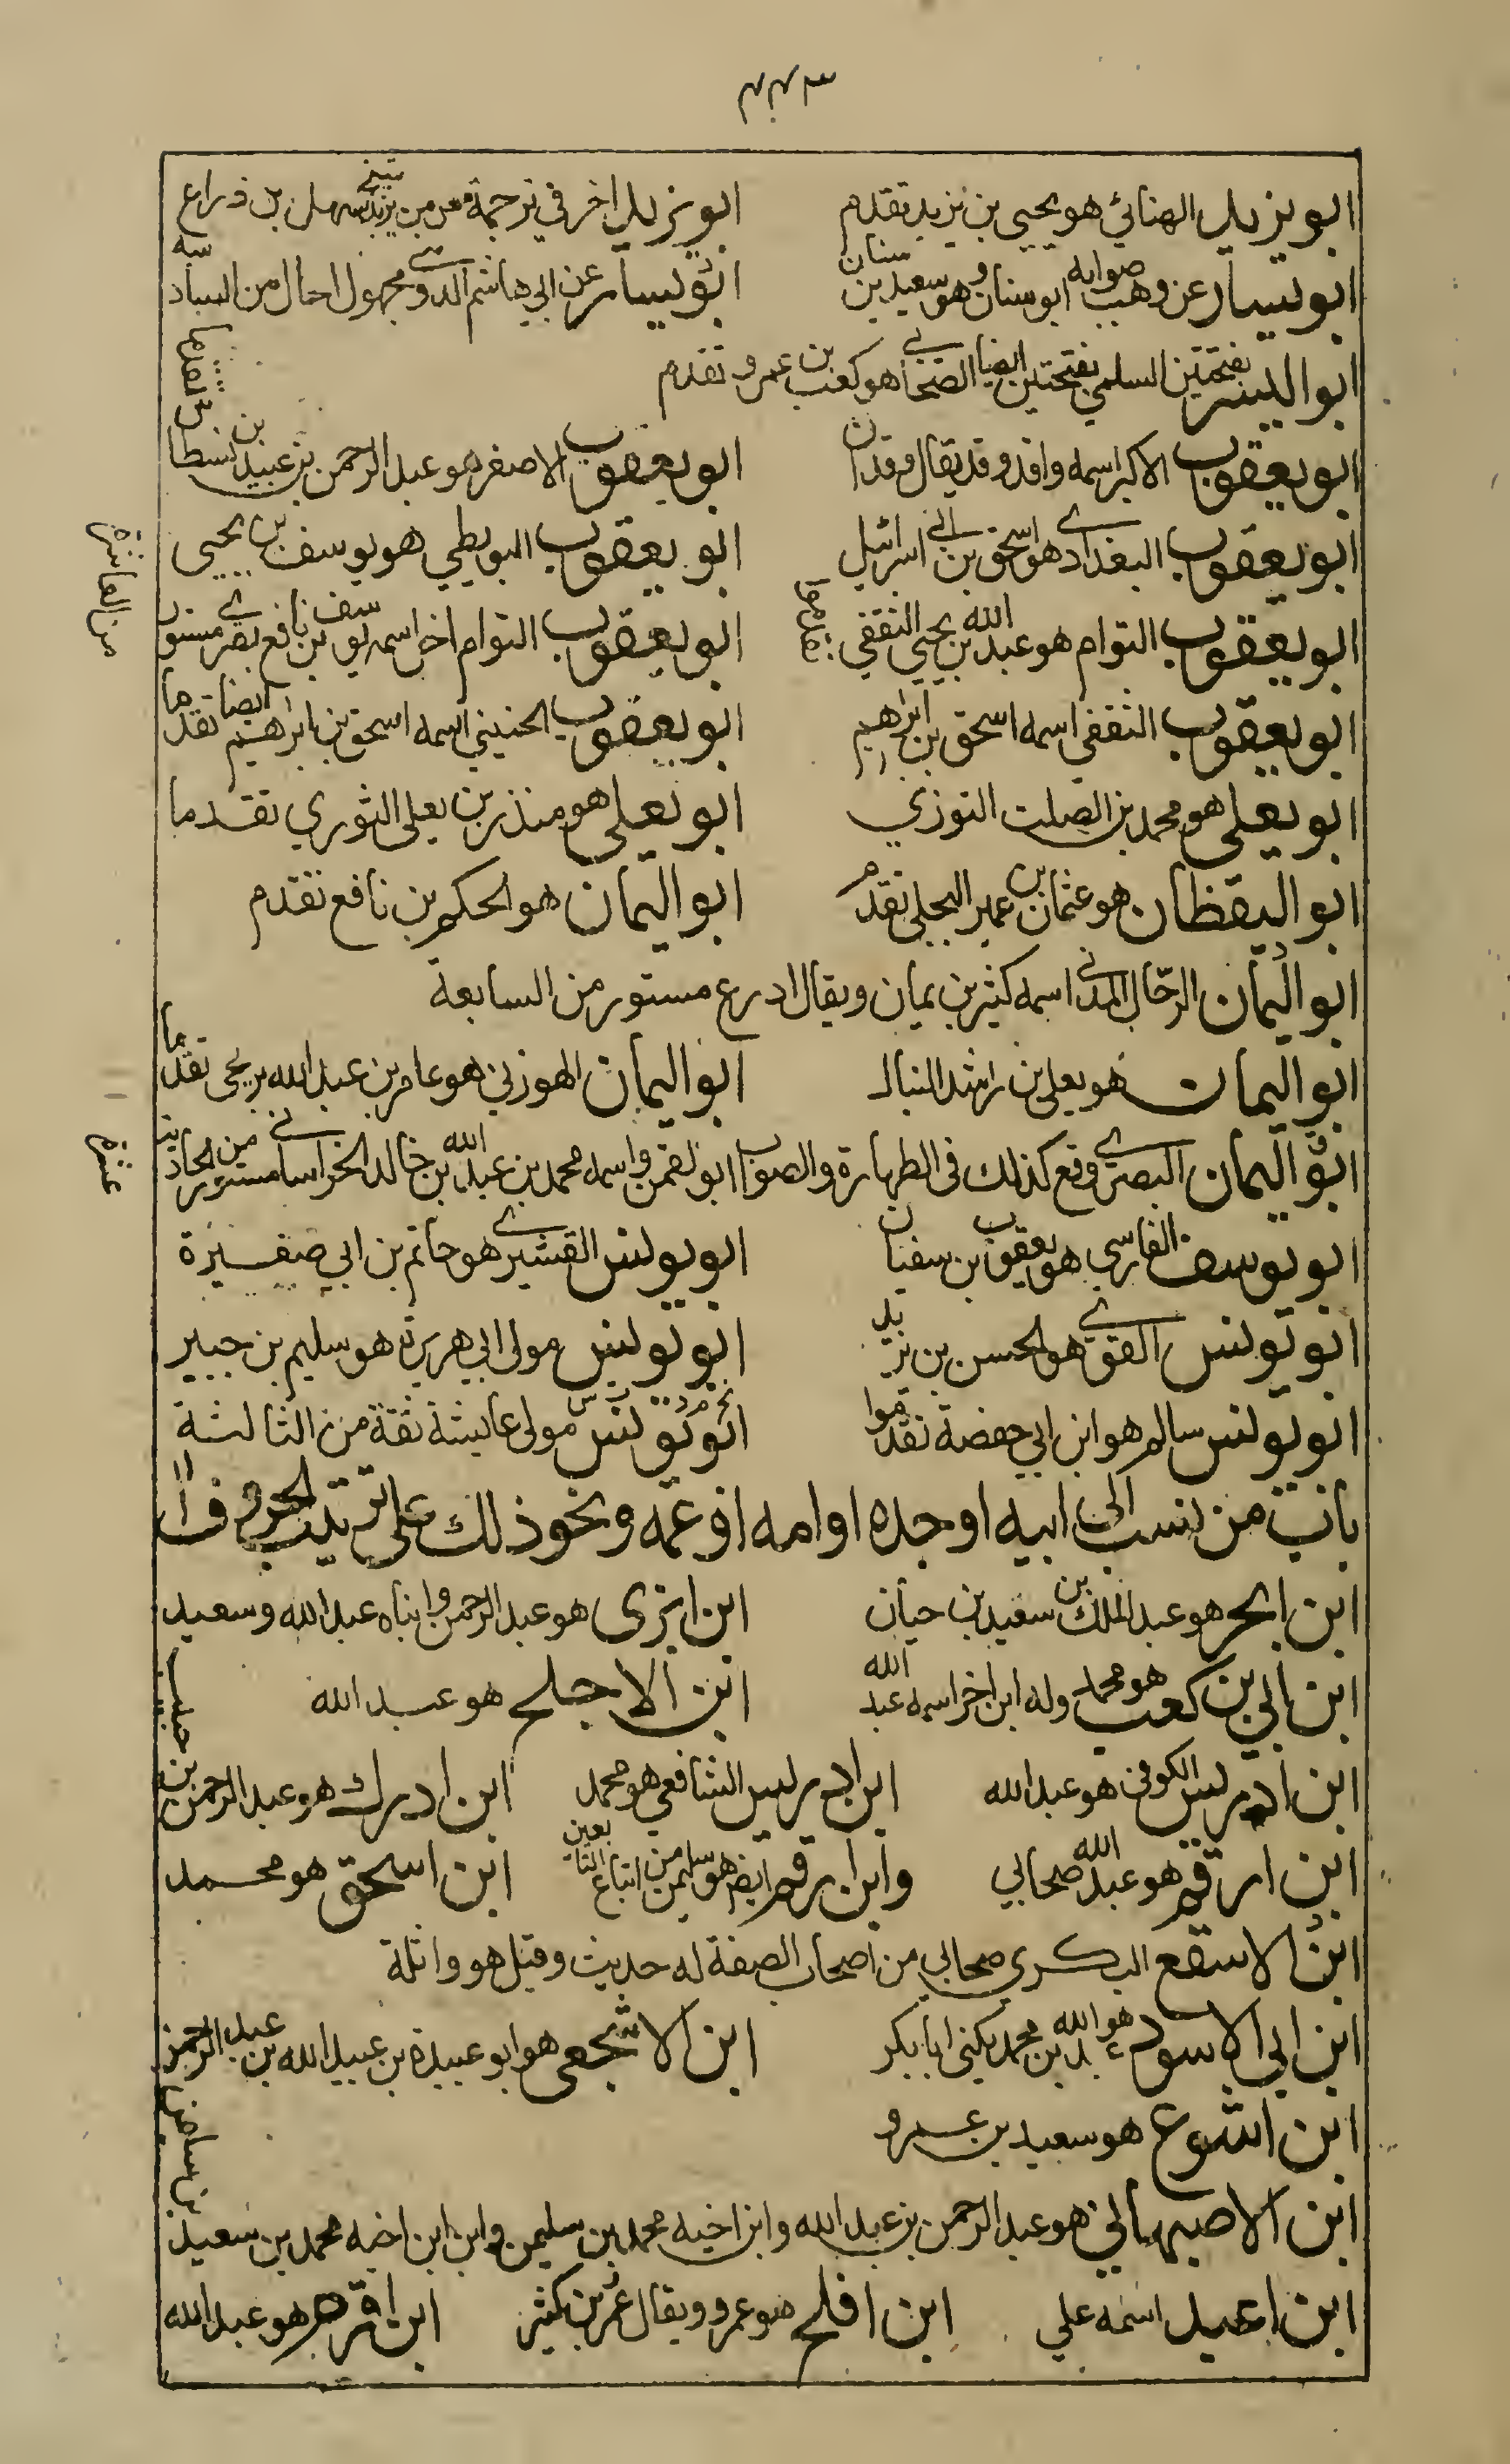 ٣٤٤
ابو يزيد الهنائي هو يحيى بن يزيد تقدم ابو يزيد اخر في ترجمة معن بن يزيد سهل بن ذراع
ابو يسار عن وهب صوابه ابو سنان وهو سعيد بن سنان ابو يسار عن ابي هاشم الدوسي مجهول الحال من السادسة
ابو اليسر بفتحتين السلمي بفتحتين ايضا الصحابي هو كعب بن عمرو تقدم
ابو يعقوب الاكبر اسمه واقد وقد يقال وقدان ابو يعقوب الاصغر هو عبد الرحمن بن عبيد بن نسطاس تقدما
ابو يعقوب البغدادي هو اسحق بن ابي اسرائيل ابو يعقوب البويطي هو يوسف بن يحيى
ابو يعقوب التوام هو عبد الله بن يحيى الثقفي ابو يعقوب التوام اخر اسمه يوسف بن نافع بصري مستور من العاشرة
ابو يعقوب الثقفي اسمه اسحق بن ابراهيم ابو يعقوب الحنيني اسمه اسحق بن ابراهيم ايضا تقدما
ابو يعلى هو محمد بن الصلت التوزي ابو يعلى هو منذر بن يعلى الثوري تقدما
ابو اليقظان هو عثمان بن عمير البجلي تقدم ابو اليمان هو الحكم بن نافع تقدم
ابو اليمان الرحال المدني اسمه كثير بن يمان ويقال ادرع مستور من السابعة
ابو اليمان هو يعلى بن راشد النبال ابو اليمان الهوزني هو عامر بن عبد الله بن يحيى تقدما
ابو اليمان البصري وقع كذلك في الطهارة والصواب ابو لقمن واسمه محمد بن عبد الله بن خالد الخراساني مستور من الحادية عشرة
ابو يوسف الفارسي هو يعقوب بن سفيان ابو يونس القشيري هو حاتم بن ابي صغيرة
ابو يونس القوي هو الحسن بن يزيد ابو يونس مولى ابي هريرة هو سليم بن جبير
ابو يونس سالم هو ابن ابي حفصة تقدموا ابو يونس مولى عايشة ثقة من الثالثة
باب من نسب الى ابيه او جده او امه او عمه ونحو ذلك على ترتيب الحروف ا
ابن ابجر هو عبد الملك بن سعيد بن حيان ابن ابزى هو عبد الرحمن وابناه عبد الله وسعيد
ابن ابي بن كعب هو محمد وله ابن اخر اسمه عبد الله ابن الاجلح هو عبد الله
ابن ادريس الكوفي هو عبد الله ابن ادريس الشافعي هو محمد ابن ادرك هو عبد الرحمن بن حبيب
ابن ارقم هو عبد الله صحابي وابن ارقم ايضا هو سليمن من اتباع التابعين ابن اسحق هو محمد
ابن الاسقع البكري صحابي من اصحاب الصفة له حديث وقيل هو واثلة
ابن ابي الاسود هو عبد الله بن محمد يكنى ابا بكر ابن الاشجعي هو ابو عبيدة بن عبيد الله بن عبد الرحمن
ابن اشوع هو سعيد بن عمرو
ابن الاصبهاني هو عبد الرحمن بن عبد الله وابن اخيه محمد بن سليمن وابن ابن اخيه محمد بن سعيد
ابن اعبد اسمه علي ابن افلح هو عمرو ويقال عمر بن كثير ابن اقرم هو عبد الله